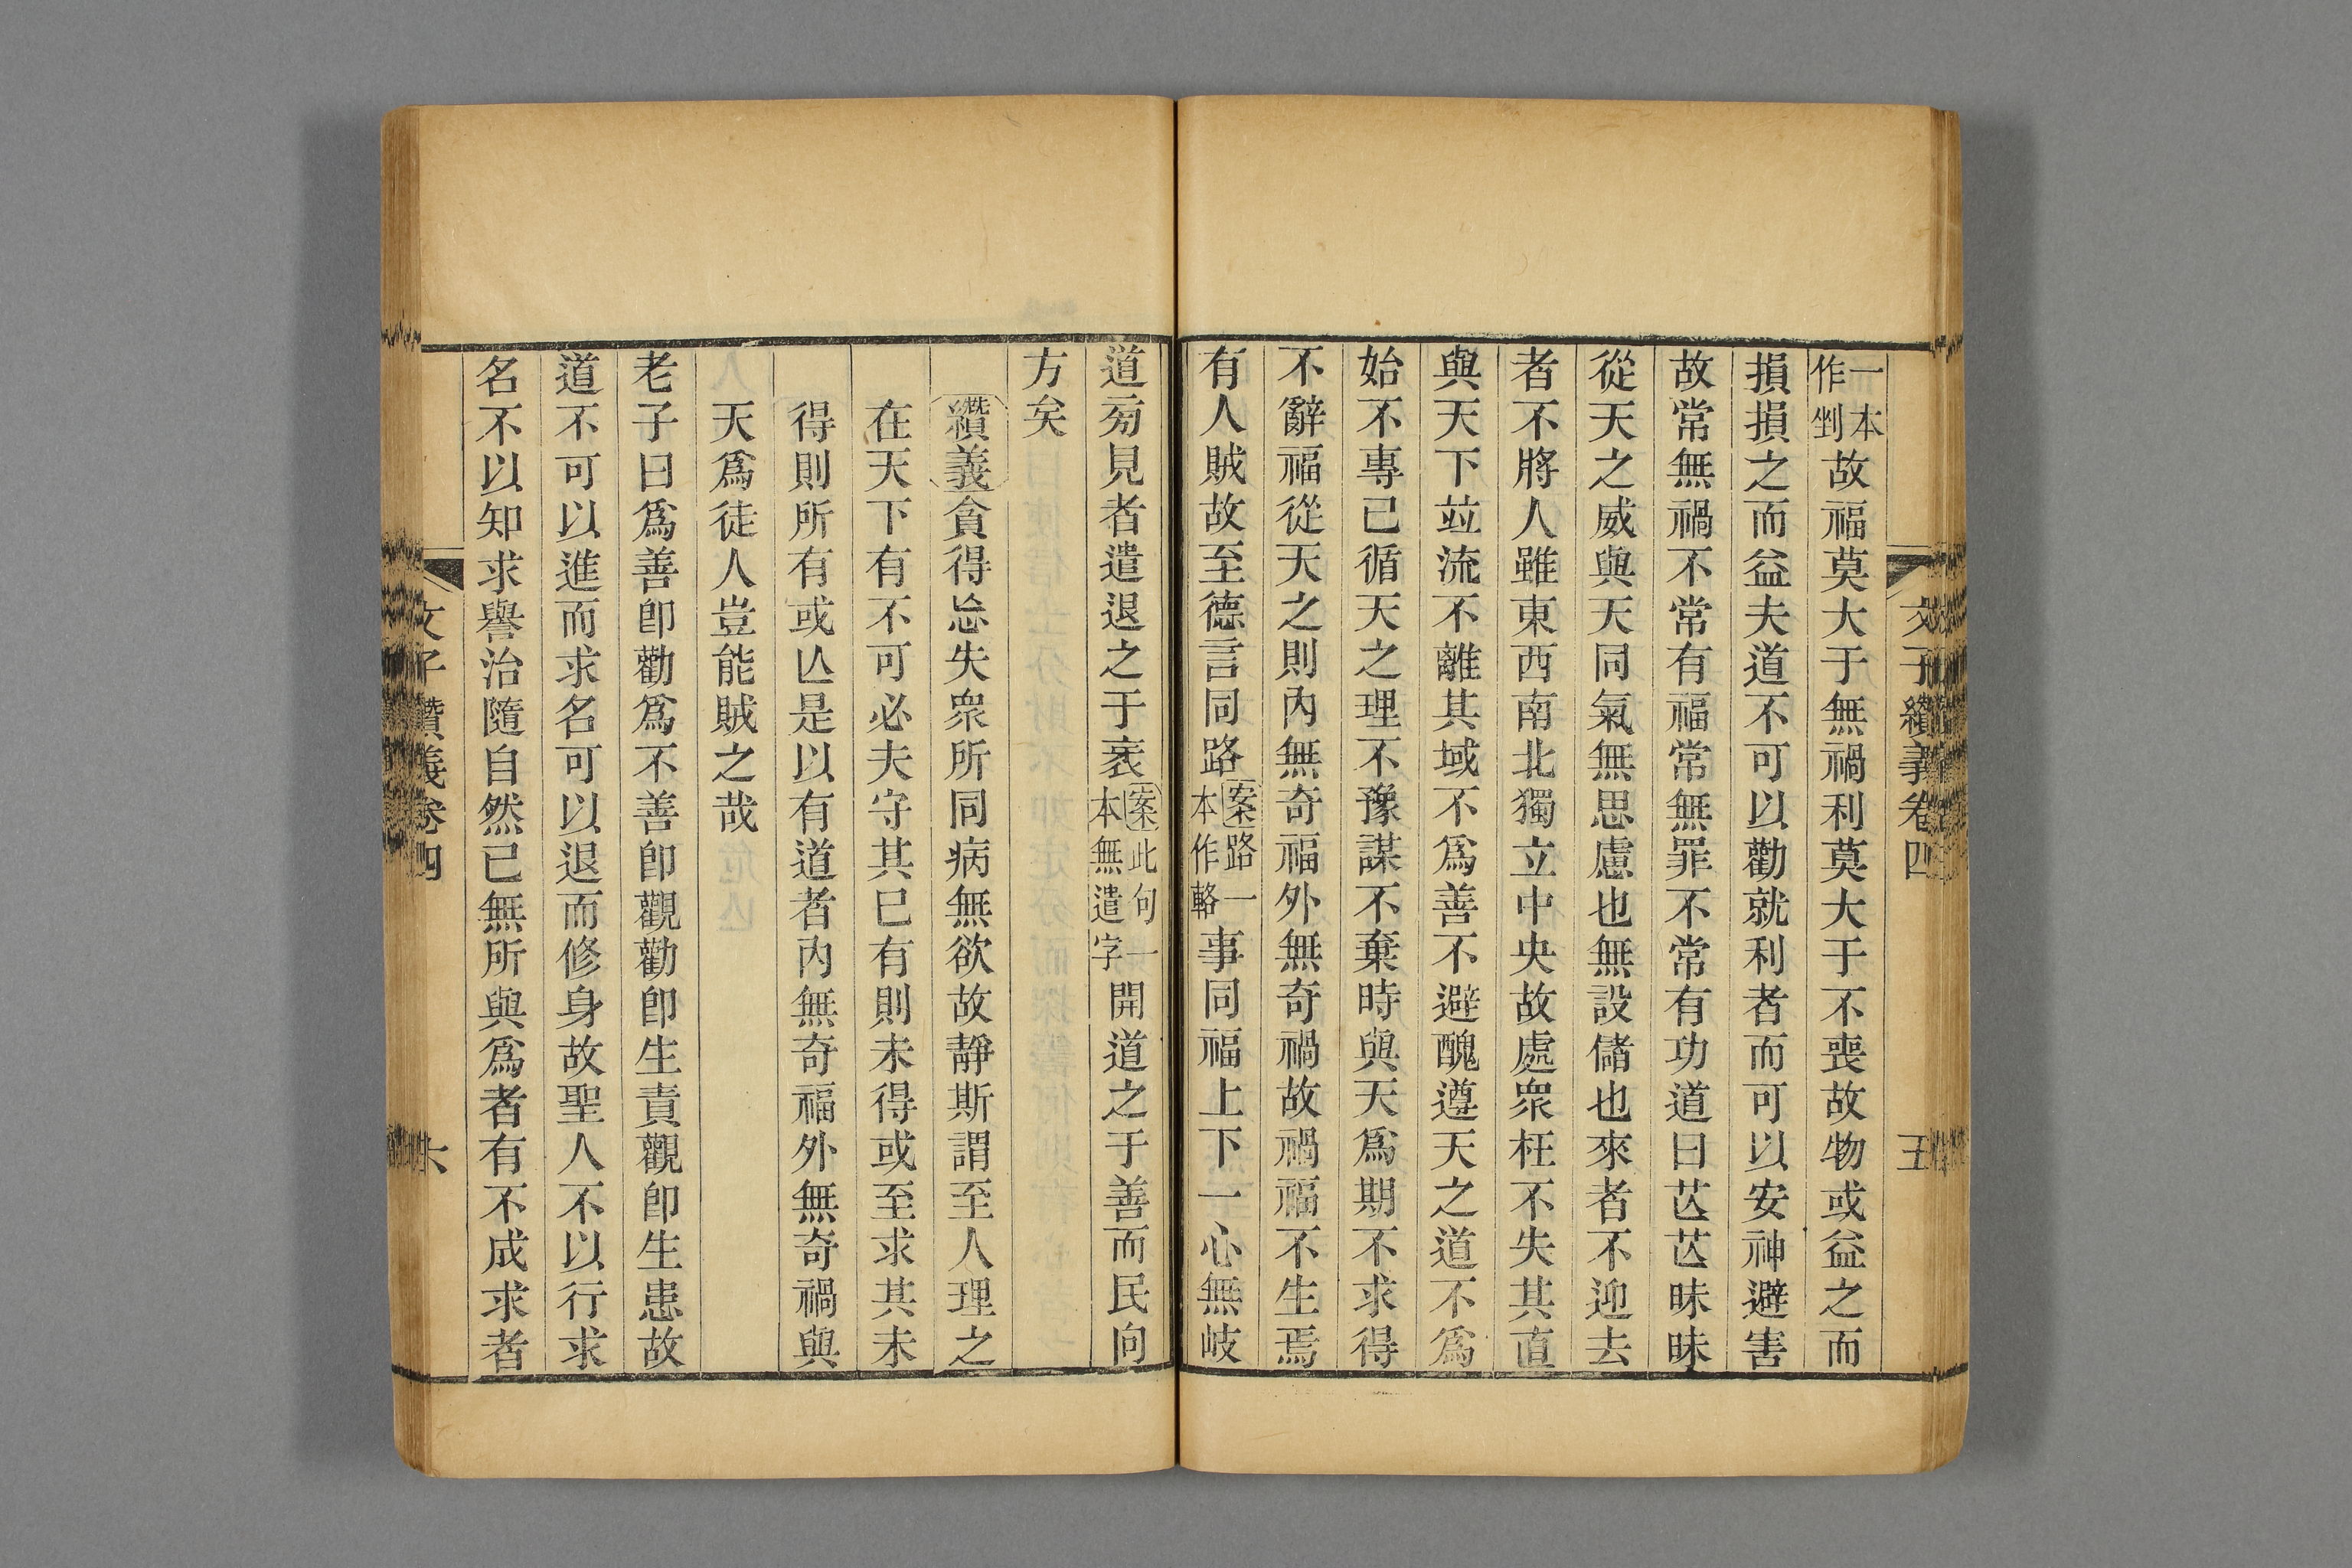 文子纘義卷四 五
一本作剉故福莫大于無禍利莫大于不喪故物或益之而
損損之而益夫道不可以勸就利者而可以安神避害
故常無禍不常有福常無罪不常有功道曰芒芒昧昧
從天之威與天同氣無思慮也無設儲也來者不迎去
者不將人雖東西南北獨立中央故處衆枉不失其直
與天下竝流不離其域不爲善不避醜遵天之道不爲
始不專己循天之理不豫謀不棄時與天爲期不求得
不辭福從天之則內無奇福外無奇禍故禍福不生焉
有人賊故至德言同路案路一本作輅事同福上下一心無岐
道㫄見者遣退之于衺案此句一本無遣字開道之于善而民向
方矣
纘義貪得忘失衆所同病無欲故靜斯謂至人理之
在天下有不可必夫守其已有則未得或至求其未
得則所有或亾是以有道者內無奇福外無奇禍與
天爲徒人豈能賊之哉
老子曰爲善卽勸爲不善卽觀勸卽生責觀卽生患故
道不可以進而求名可以退而修身故聖人不以行求
名不以知求譽治隨自然已無所與爲者有不成求者
文子纘義卷四 六